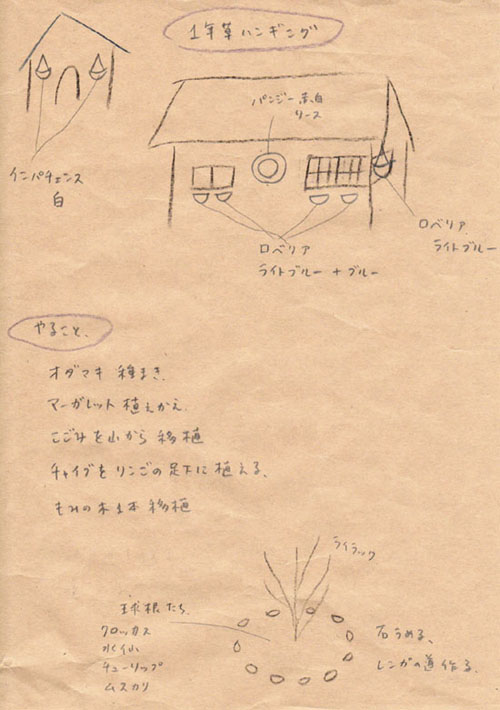 1年草ハンギング
パンジー 赤白
リース
インパチェンス
白
ロベリア
ライトブルー
ロベリア
ライトブルー + ブルー
やること、
オダマキ 種まき、
マーガレット 植えかえ、
こごみを山から 移植
チャイブを リンゴの足下に 植える、
もみの木 1本 移植
ライラック
球根たち
クロッカス
水仙
チューリップ
ムスカリ
石うめる、
レンガの道 作る、